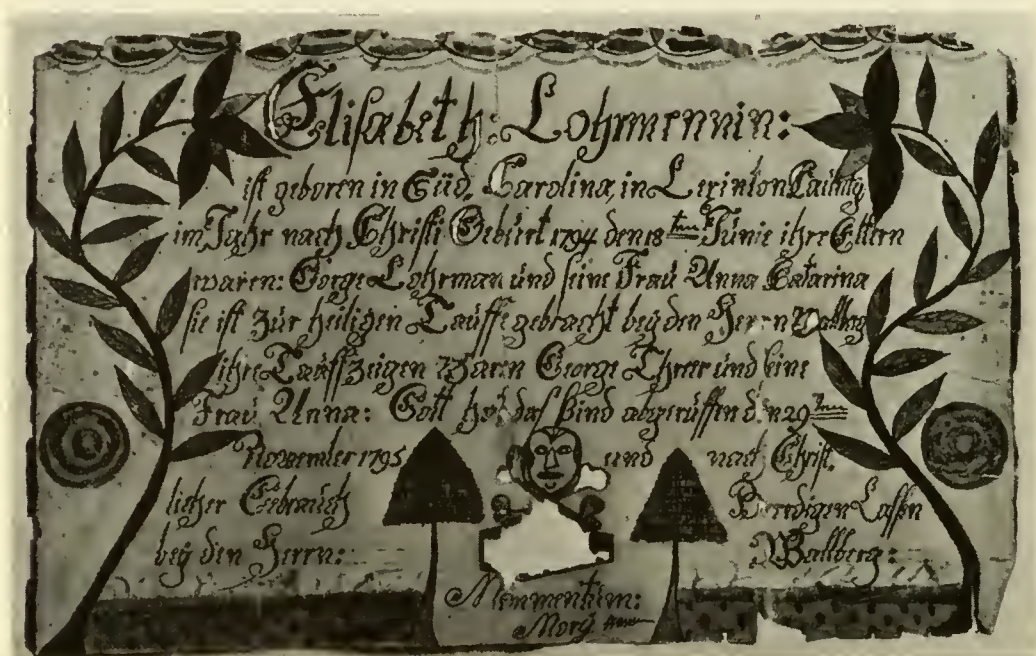 Elisabeth: Lohrmennin:
ist geboren in Süd, Carolina, in Lexinton Caunty
im Jahr nach Christi Gebürt 1794 den 18ten Jünie ihre Eltern
waren: Görge Lohrman ünd seine Fraü Anna Catarina
sie ist zür heiligen Taüffe gebracht beÿ den Herrn Wallberg
ihre Taüffzeigen Waren George und seine
Fraü Anna: Gott hat das Kind abgerüffen den 29ten
November 1795 und nach Christ.
licher Gebraüch Beredigen Lassen
beÿ den Herrn: Wallberg:
Memmentüm:
Morÿ